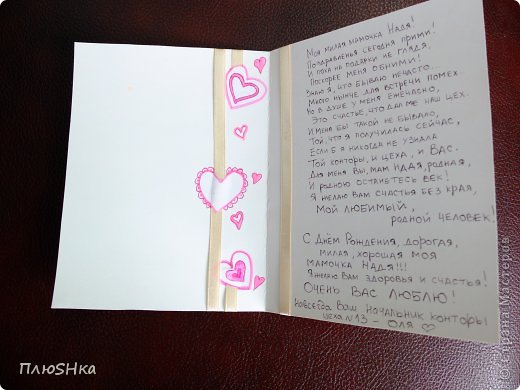 Моя милая мамочка Надя!
Поздравленья сегодня прими!
И пока на подарки не глядя,
Поскорее меня обними!
Знаю я, что бываю нечасто...
Много нынче для встречи помех.
Но в душе у меня ежечасно,
Это счастье, что дал мне наш цех.
И меня бы такой не бывало,
Той, что я получилась сейчас,
Если б я никогда не узнала
Той конторы, и цеха, и Вас.
Для меня Вы, мам Надя, родная,
И родною останетесь век!
Я желаю Вам счастья без края,
Мой любимый,
родной человек!
С Днём Рождения, дорогая,
милая, хорошая моя
мамочка Надя!!!
Я желаю Вам здоровья и счастья!
Очень Вас люблю!
Навсегда Ваш начальник конторы
цеха №13 - Оля ♡
ПлюSHка
Страна Мастеров